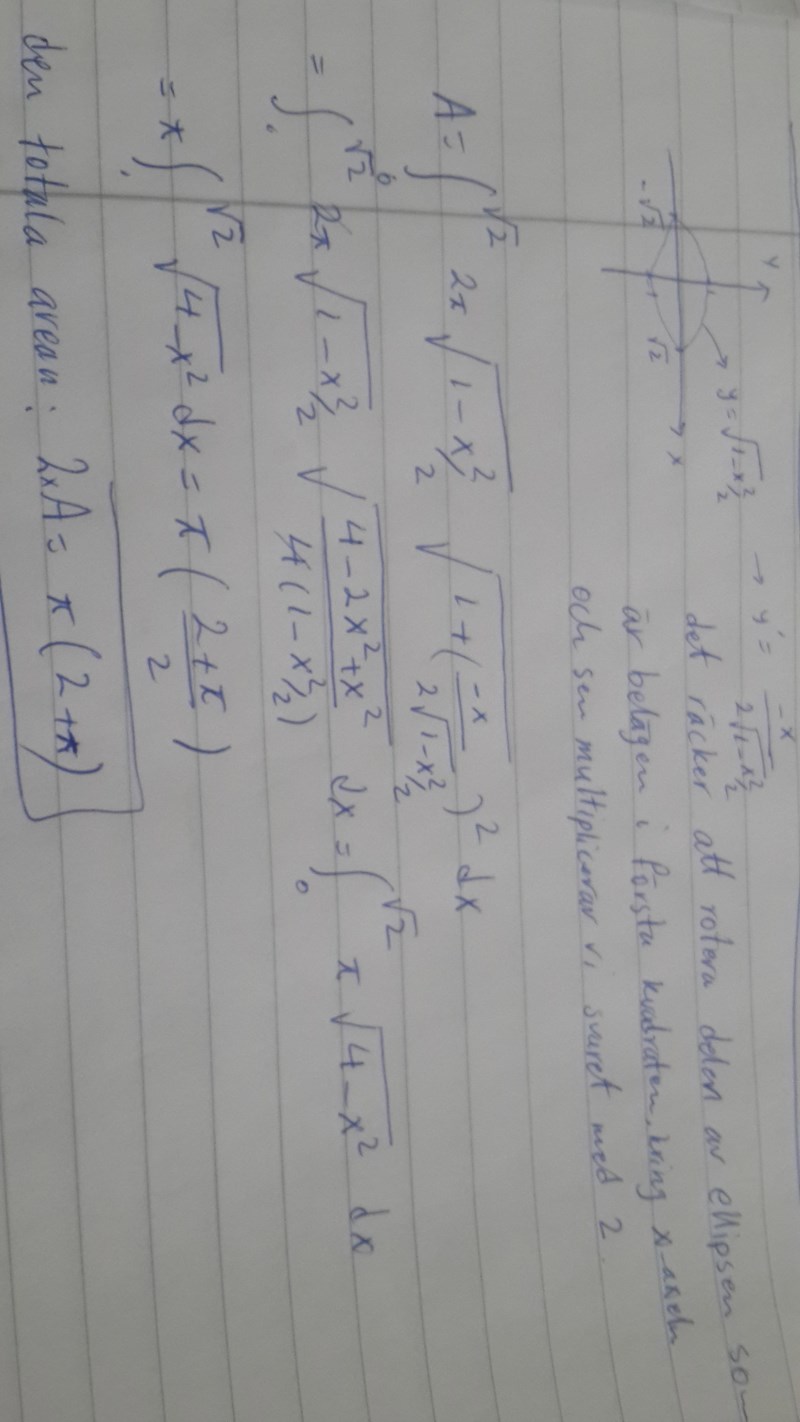 y
y = √(1-x²/2) → y' = -x / (2√(1-x²/2))
-√2 √2 x
det räcker att rotera delen av ellipsen som
är belägen i första kvadraten, kring x-axeln
och sen multiplicerar vi svaret med 2.
A = ∫₀^√2 2π √(1-x²/2) √(1+(-x / (2√(1-x²/2)))²) dx
= ∫₀^√2 2π √(1-x²/2) √((4-2x²+x²) / (4(1-x²/2))) dx = ∫₀^√2 π √(4-x²) dx
= π ∫₀^√2 √(4-x²) dx = π ((2+π)/2)
den totala arean: 2×A = π (2+π)